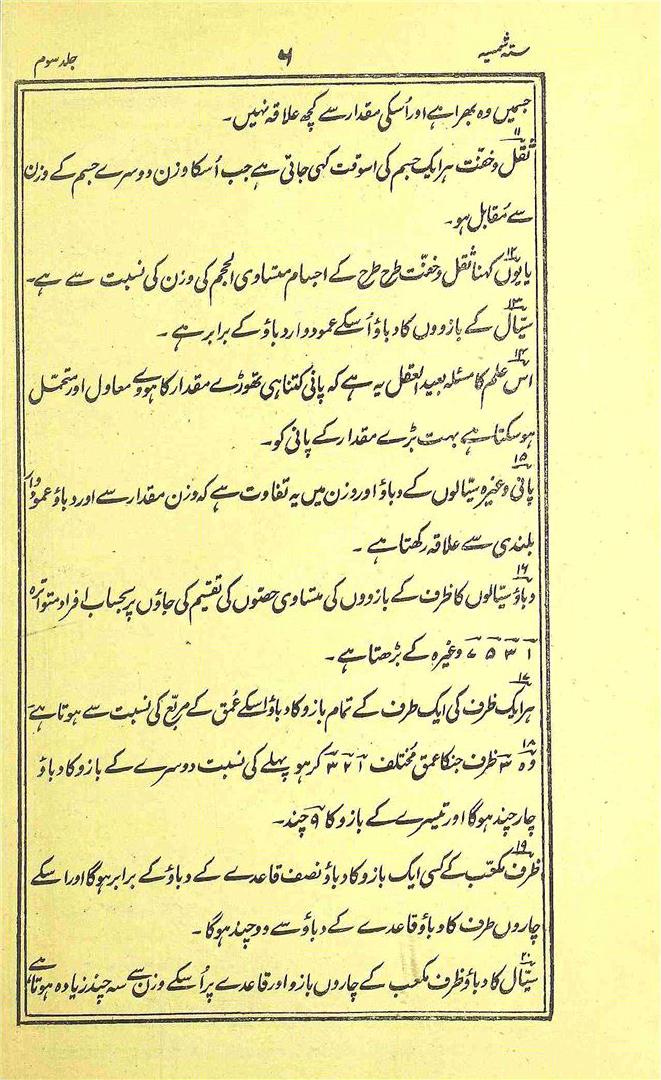 ستہ شمسیہ
۶
جلد سوم
جسمیں وہ بھرا ہے اور اُسکی مقدار سے کچھ علاقہ نہیں۔
۱۱ ثقل و خفّت ہر ایک جسم کی اسوقت کہی جاتی ہے جب اُسکا وزن دوسرے جسم کے وزن
سے مُقابل ہو۔
۱۲ یا یوں کہنا ثقل و خفّت طرح طرح کے اجسام متساوی الحجم کی وزن کی نسبت سے ہے۔
۱۳ سیّال کے بازووں کا دباؤ اُسکے عمود وار دباؤ کے برابر ہے۔
۱۴ اس علم کا مسئلہ بعید العقل یہ ہے کہ پانی کتنا ہی تھوڑے مقدار کا ہووے معاول اور متحمّل
ہو سکتا ہے بہت بڑے مقدار کے پانی کو۔
۱۵ پانی وغیرہ سیّالوں کے دباؤ اور وزن میں یہ تفاوت ہے کہ وزن مقدار سے اور دباؤ عمود وار
بلندی سے علاقہ رکھتا ہے۔
۱۶ دباؤ سیّالوں کا ظرف کے بازووں کی متساوی حصّوں کی تقسیم کی جاؤں پر بحساب افراد متواترہ
۱ ۳ ۵ ۷ وغیرہ کے بڑھتا ہے۔
۱۷ ہر ایک ظرف کی ایک طرف کے تمام بازو کا دباؤ اسکے عُمق کے مربّع کی نسبت سے ہوتا ہے
۱۸ وہ ۳ ظرف جنکا عمق مُختلف ۱ ۲ ۳ کر ہو پہلے کی نسبت دوسرے کے بازو کا دباؤ
چار چند ہوگا اور تیسرے کے بازو کا ۹ چند۔
۱۹ ظرف مکعّب کے کسی ایک بازو کا دباؤ نصف قاعدے کے دباؤ کے برابر ہوگا اور اسکے
چاروں طرف کا دباؤ قاعدے کے دباؤ سے دو چند ہوگا۔
۲۰ سیّال کا دباؤ ظرف مکعب کے چاروں بازو اور قاعدے پر اُسکے وزن سے سہ چند زیادہ ہوتا ہے